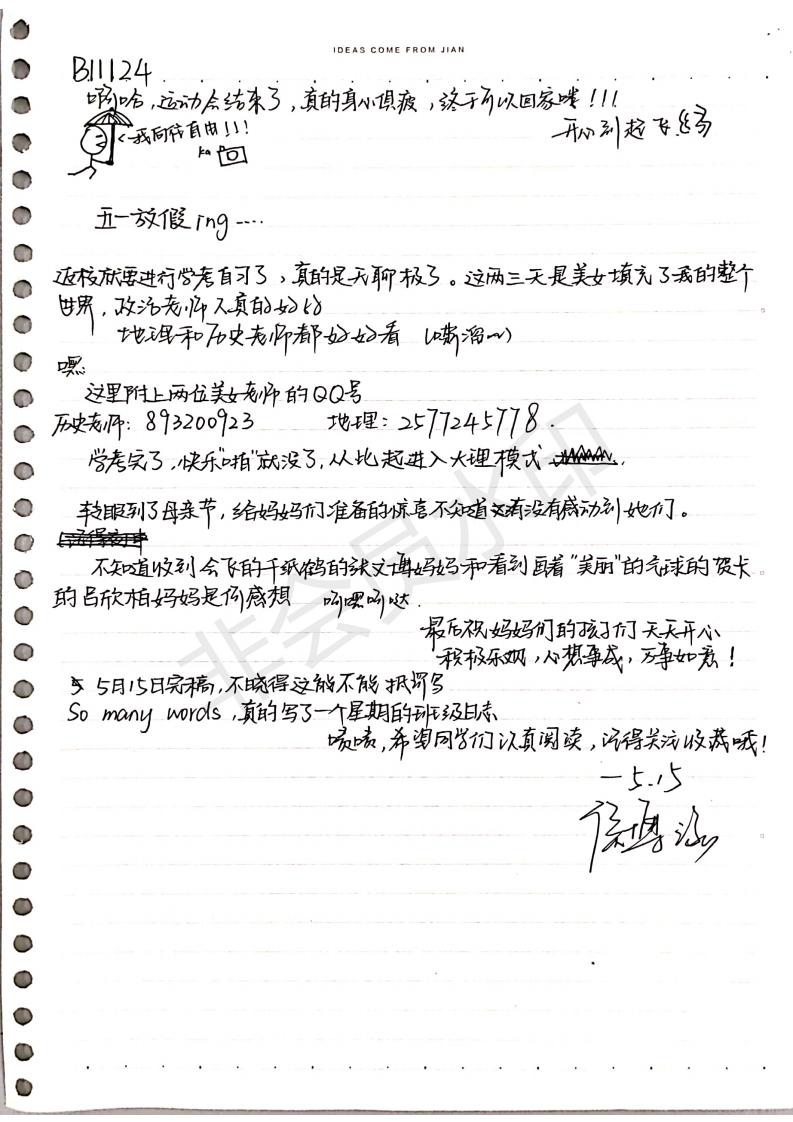 IDEAS COME FROM JIAN
B11124
啊哈，运动会结束了，真的身心俱疲，终于可以回家喽！！！
<我向往自由！！！
开心到起飞
ka
五一放假ing……
返校就要进行学考自习了，真的是无聊极了。这两三天是美女填充了我的整个
世界，政治老师人真的好好
地理和历史老师都好好看（嘶溜~）
嘿:
这里附上两位美女老师的QQ号
历史老师：893200923 地理：2577245778.
学考完了，快乐"啪"就没了，从此起进入大理模式
转眼到了母亲节，给妈妈们准备的惊喜不知道有没有感动到她们。
不知道收到会飞的千纸鹤的张文博妈妈和看到画着"美丽"的气球的贺卡
的吕欣柏妈妈是何感想 吼嘿吼哒.
最后祝妈妈们的孩子们天天开心
积极乐观，心想事成，万事如意！
5月15日完稿，不晓得这能不能抵罚写
So many words，真的写了一个星期的班级日志
啧啧，希望同学们认真阅读，记得关注收藏哦！
—5.15
非会员水印